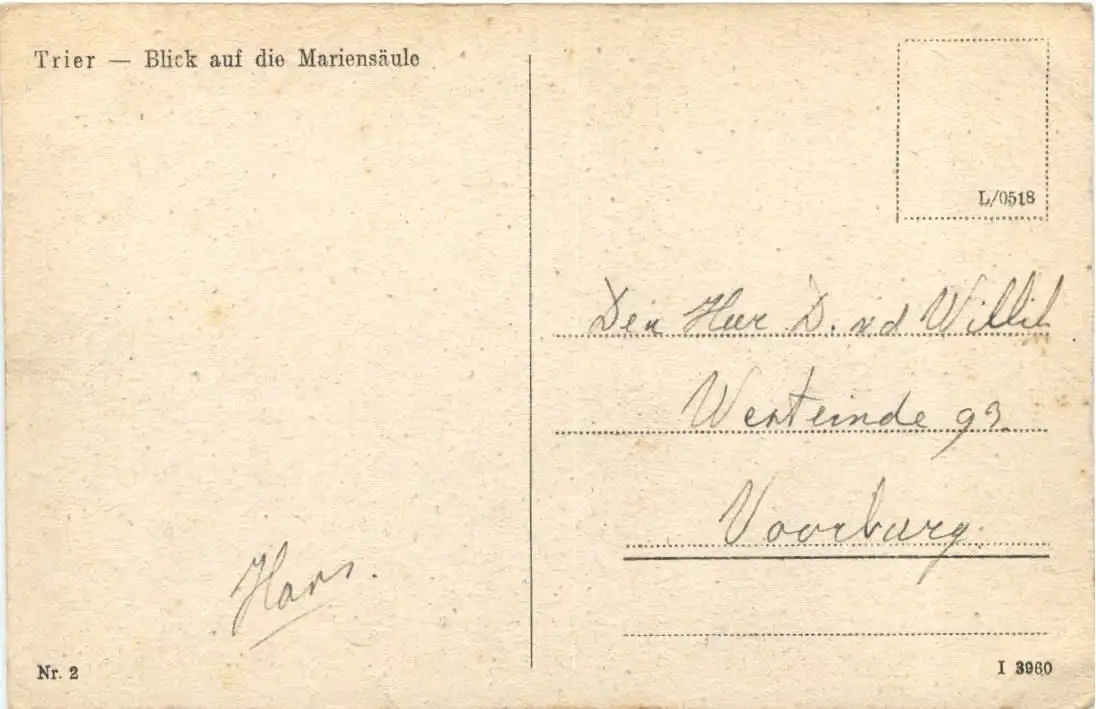 Trier — Blick auf die Mariensäule
L/0518
Den Heer D. v d
Westeinde 93.
Voorburg.
Hans.
Nr. 2
I 3960